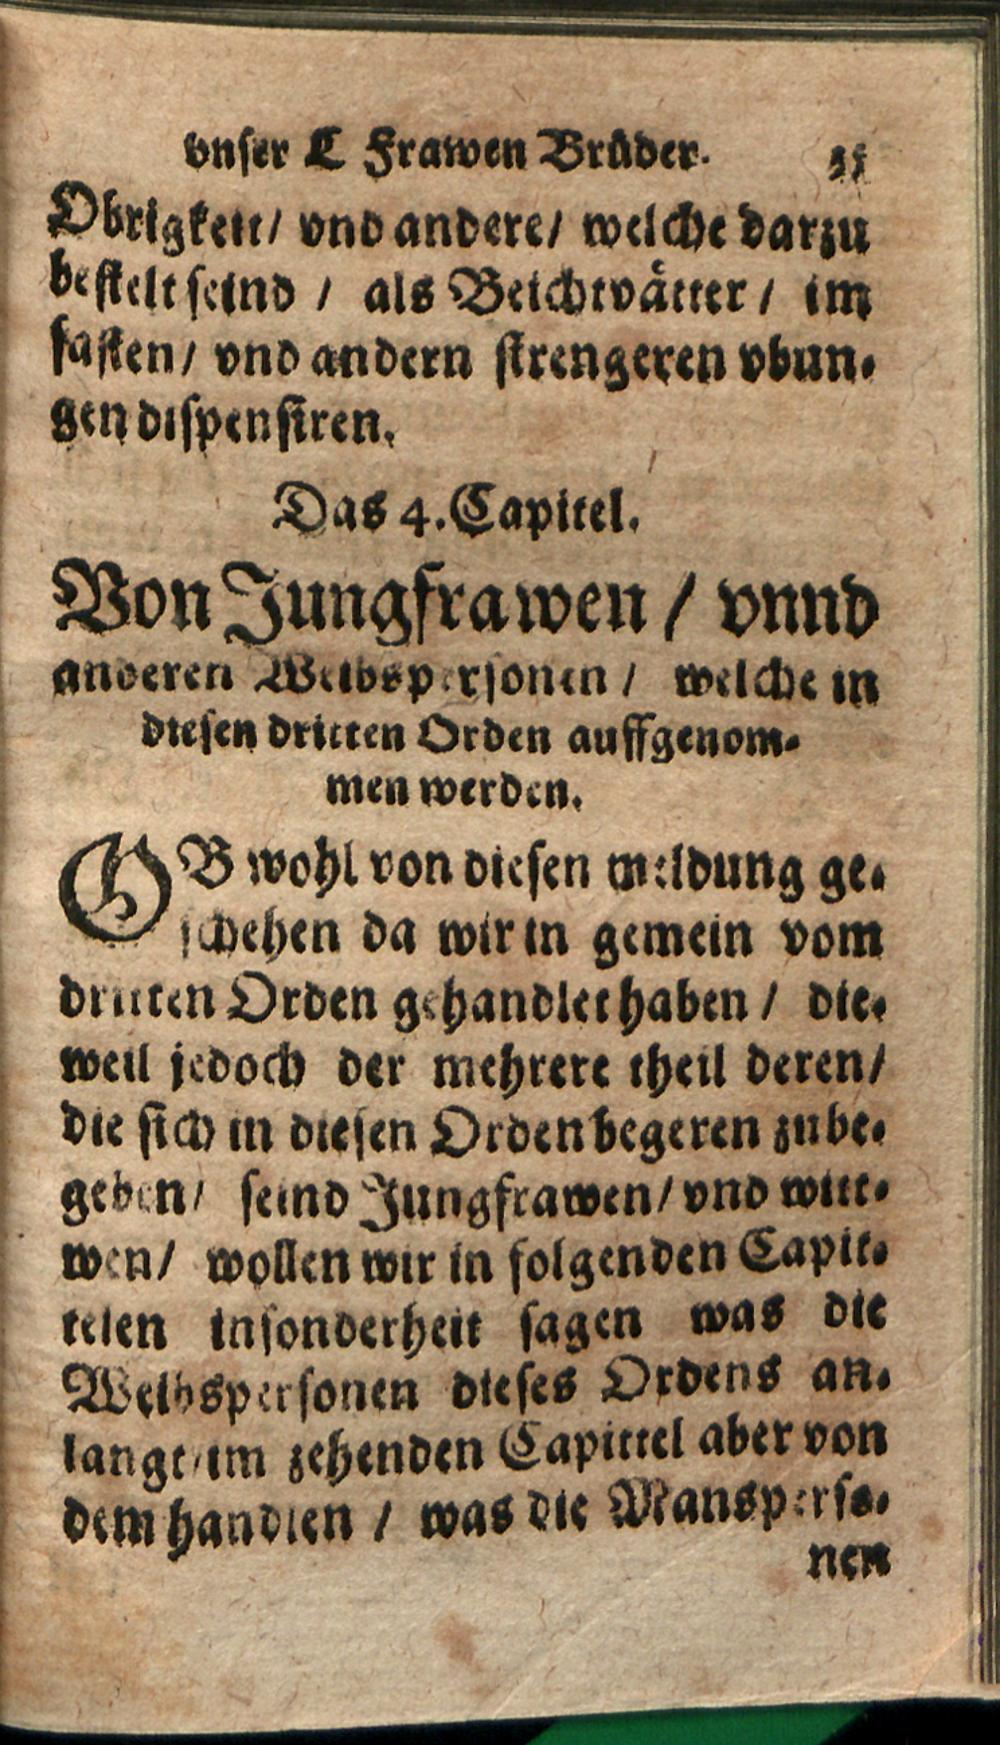 vnser L Frawen Brůder. 35
Obrigkeit/ vnd andere/ welche darzu
bestelt seind / als Beichtvätter / im
fasten/ vnd andern strengeren vbun-
gen dispensiren.
Das 4. Capitel.
Von Jungfrawen / vnnd
anderen Weibspersonen / welche in
diesen dritten Orden auffgenom-
men werden.
OB wohl von diesen meldung ge-
schehen da wir in gemein vom
dritten Orden gehandlet haben / die-
weil jedoch der mehrere theil deren/
die sich in diesen Orden begeren zube-
geben/ seind Jungfrawen/ vnd witt-
wen/ wollen wir in folgenden Capit-
telen insonderheit sagen was die
Weibspersonen dieses Ordens an-
langt/ im zehenden Capittel aber von
dem handlen / was die Manperso-
nen